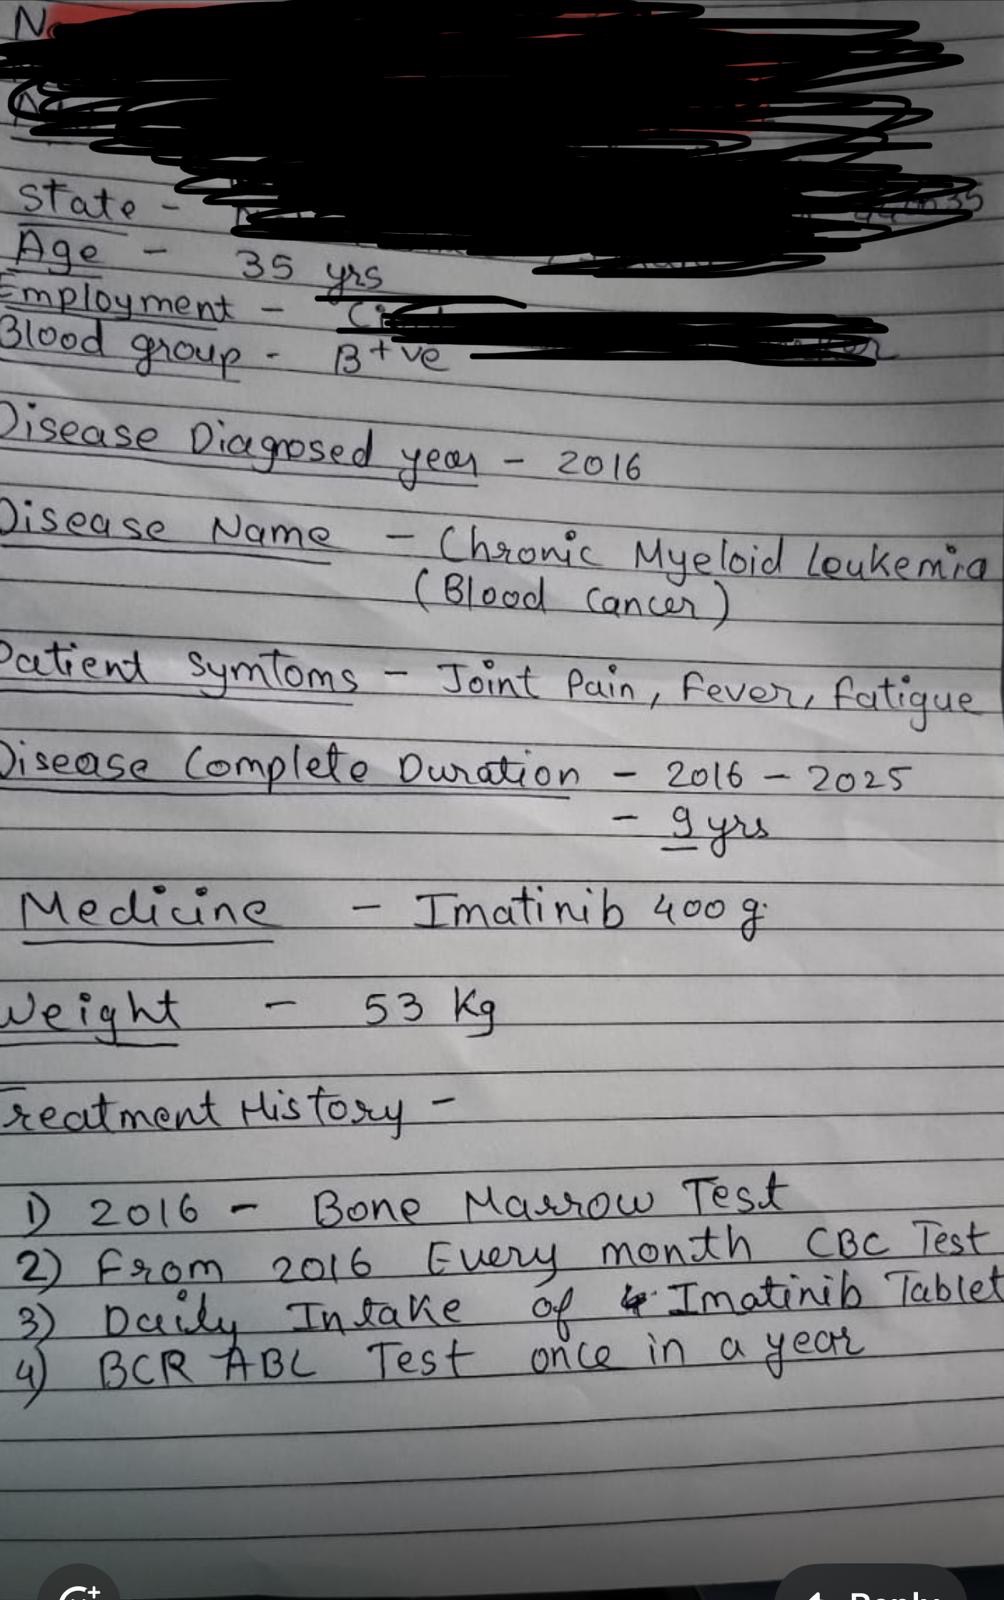 State -
Age - 35 yrs
Employment -
Blood group - B+ve
Disease Diagnosed year - 2016
Disease Name - Chronic Myeloid Leukemia
(Blood Cancer)
Patient Symtoms - Joint Pain, Fever, Fatigue
Disease Complete Duration - 2016 - 2025
- 9 yrs
Medicine - Imatinib 400 g.
Weight - 53 Kg
Treatment History -
1) 2016 - Bone Marrow Test
2) From 2016 Every month CBC Test
3) Daily Intake of Imatinib Tablet
4) BCR ABL Test once in a year